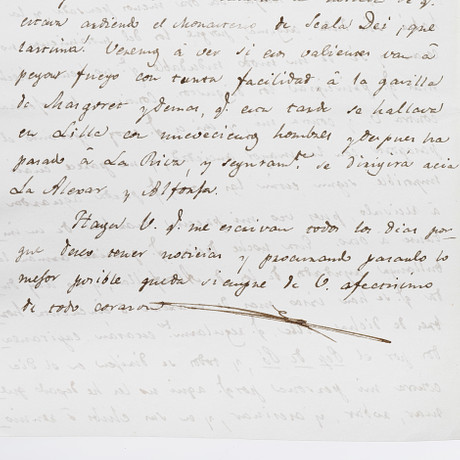 estava ardiendo el Monasterio de Scala Dei ¡que
lastima! Veremos á ver si esos valientes van á
pegar fuego con tanta facilidad á la gavilla
de Margoret y demas, q.e esta tarde se hallava
en Lilla con nuevecientos hombres y despues ha
pasado á La Riva, y seguram.te se dirigira acia
La Alexar y Alforja.
Hagan V. q.e me escrivan todos los dias por
que deseo tener noticias y procurando pasarlo lo
mejor posible queda siempre de V. afectisimo
de todo corazon